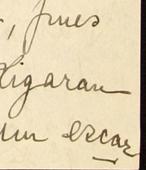 , pues
ligaran
un escar